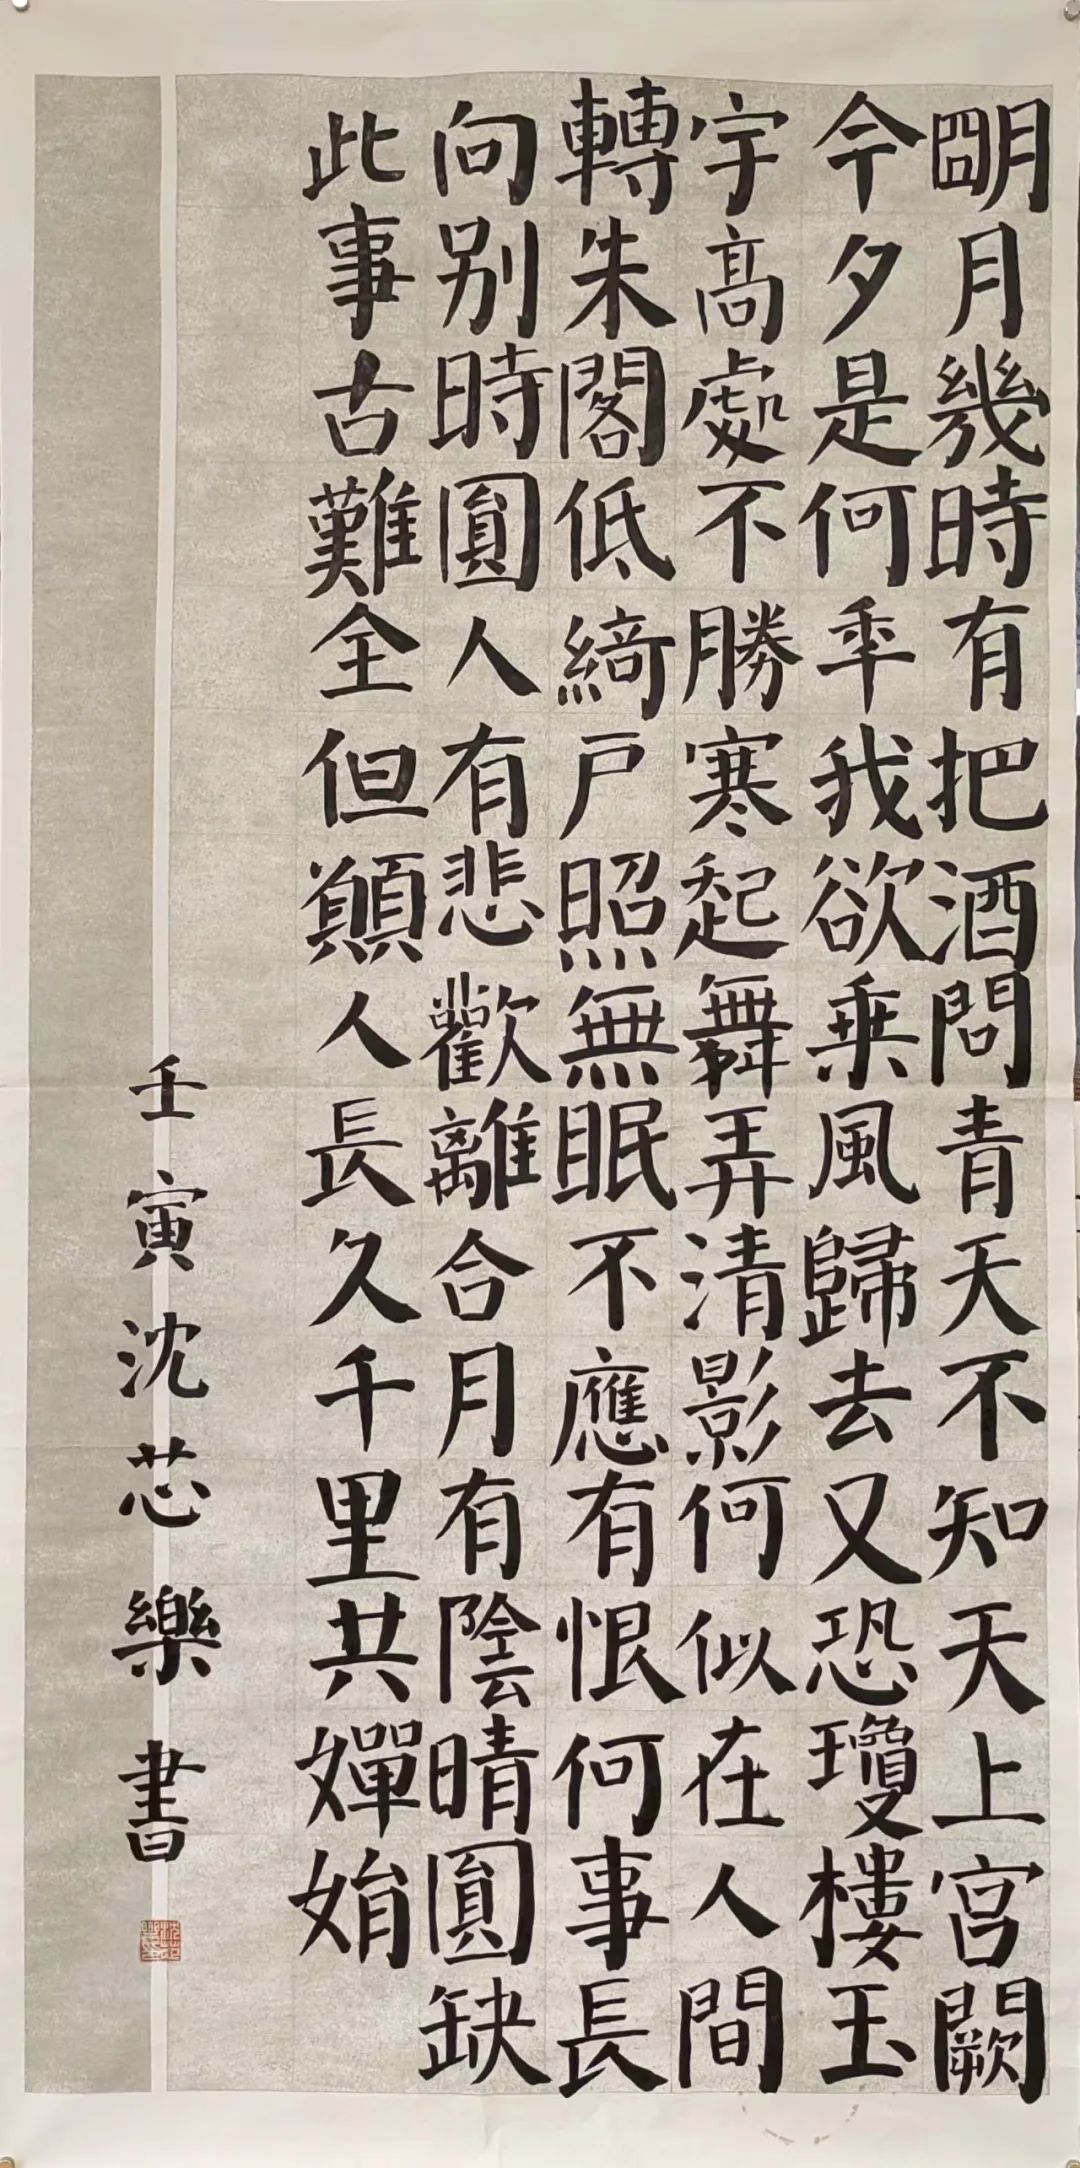 朙月幾時有把酒問青天不知天上宫闕
今夕是何年我欲乗風歸去又恐瓊樓玉
宇髙處不勝寒起舞弄清影何似在人間
轉朱閣低綺戸照無眠不應有恨何事長
向别時圓人有悲歡離合月有陰晴圓缺
此事古難全但願人長久千里共嬋娟
壬寅沈芯樂書